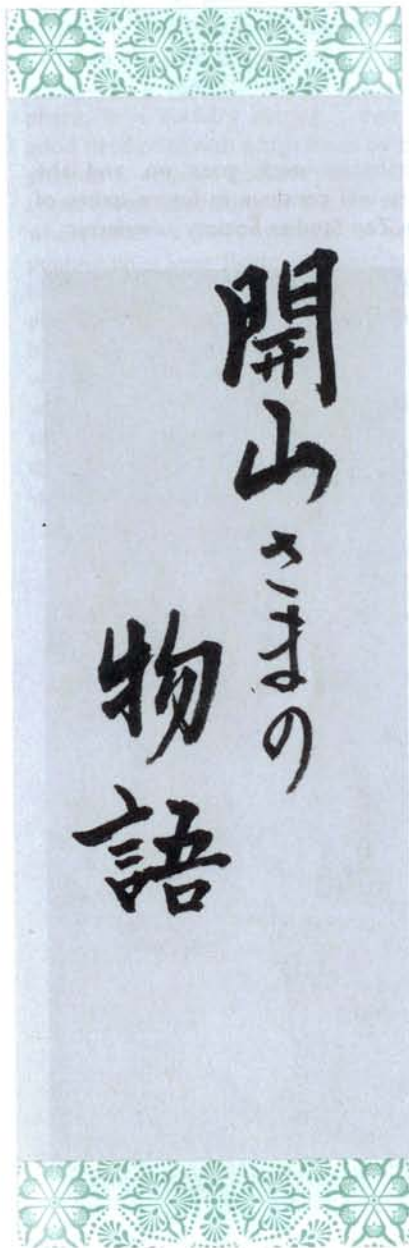 開山さまの
物語